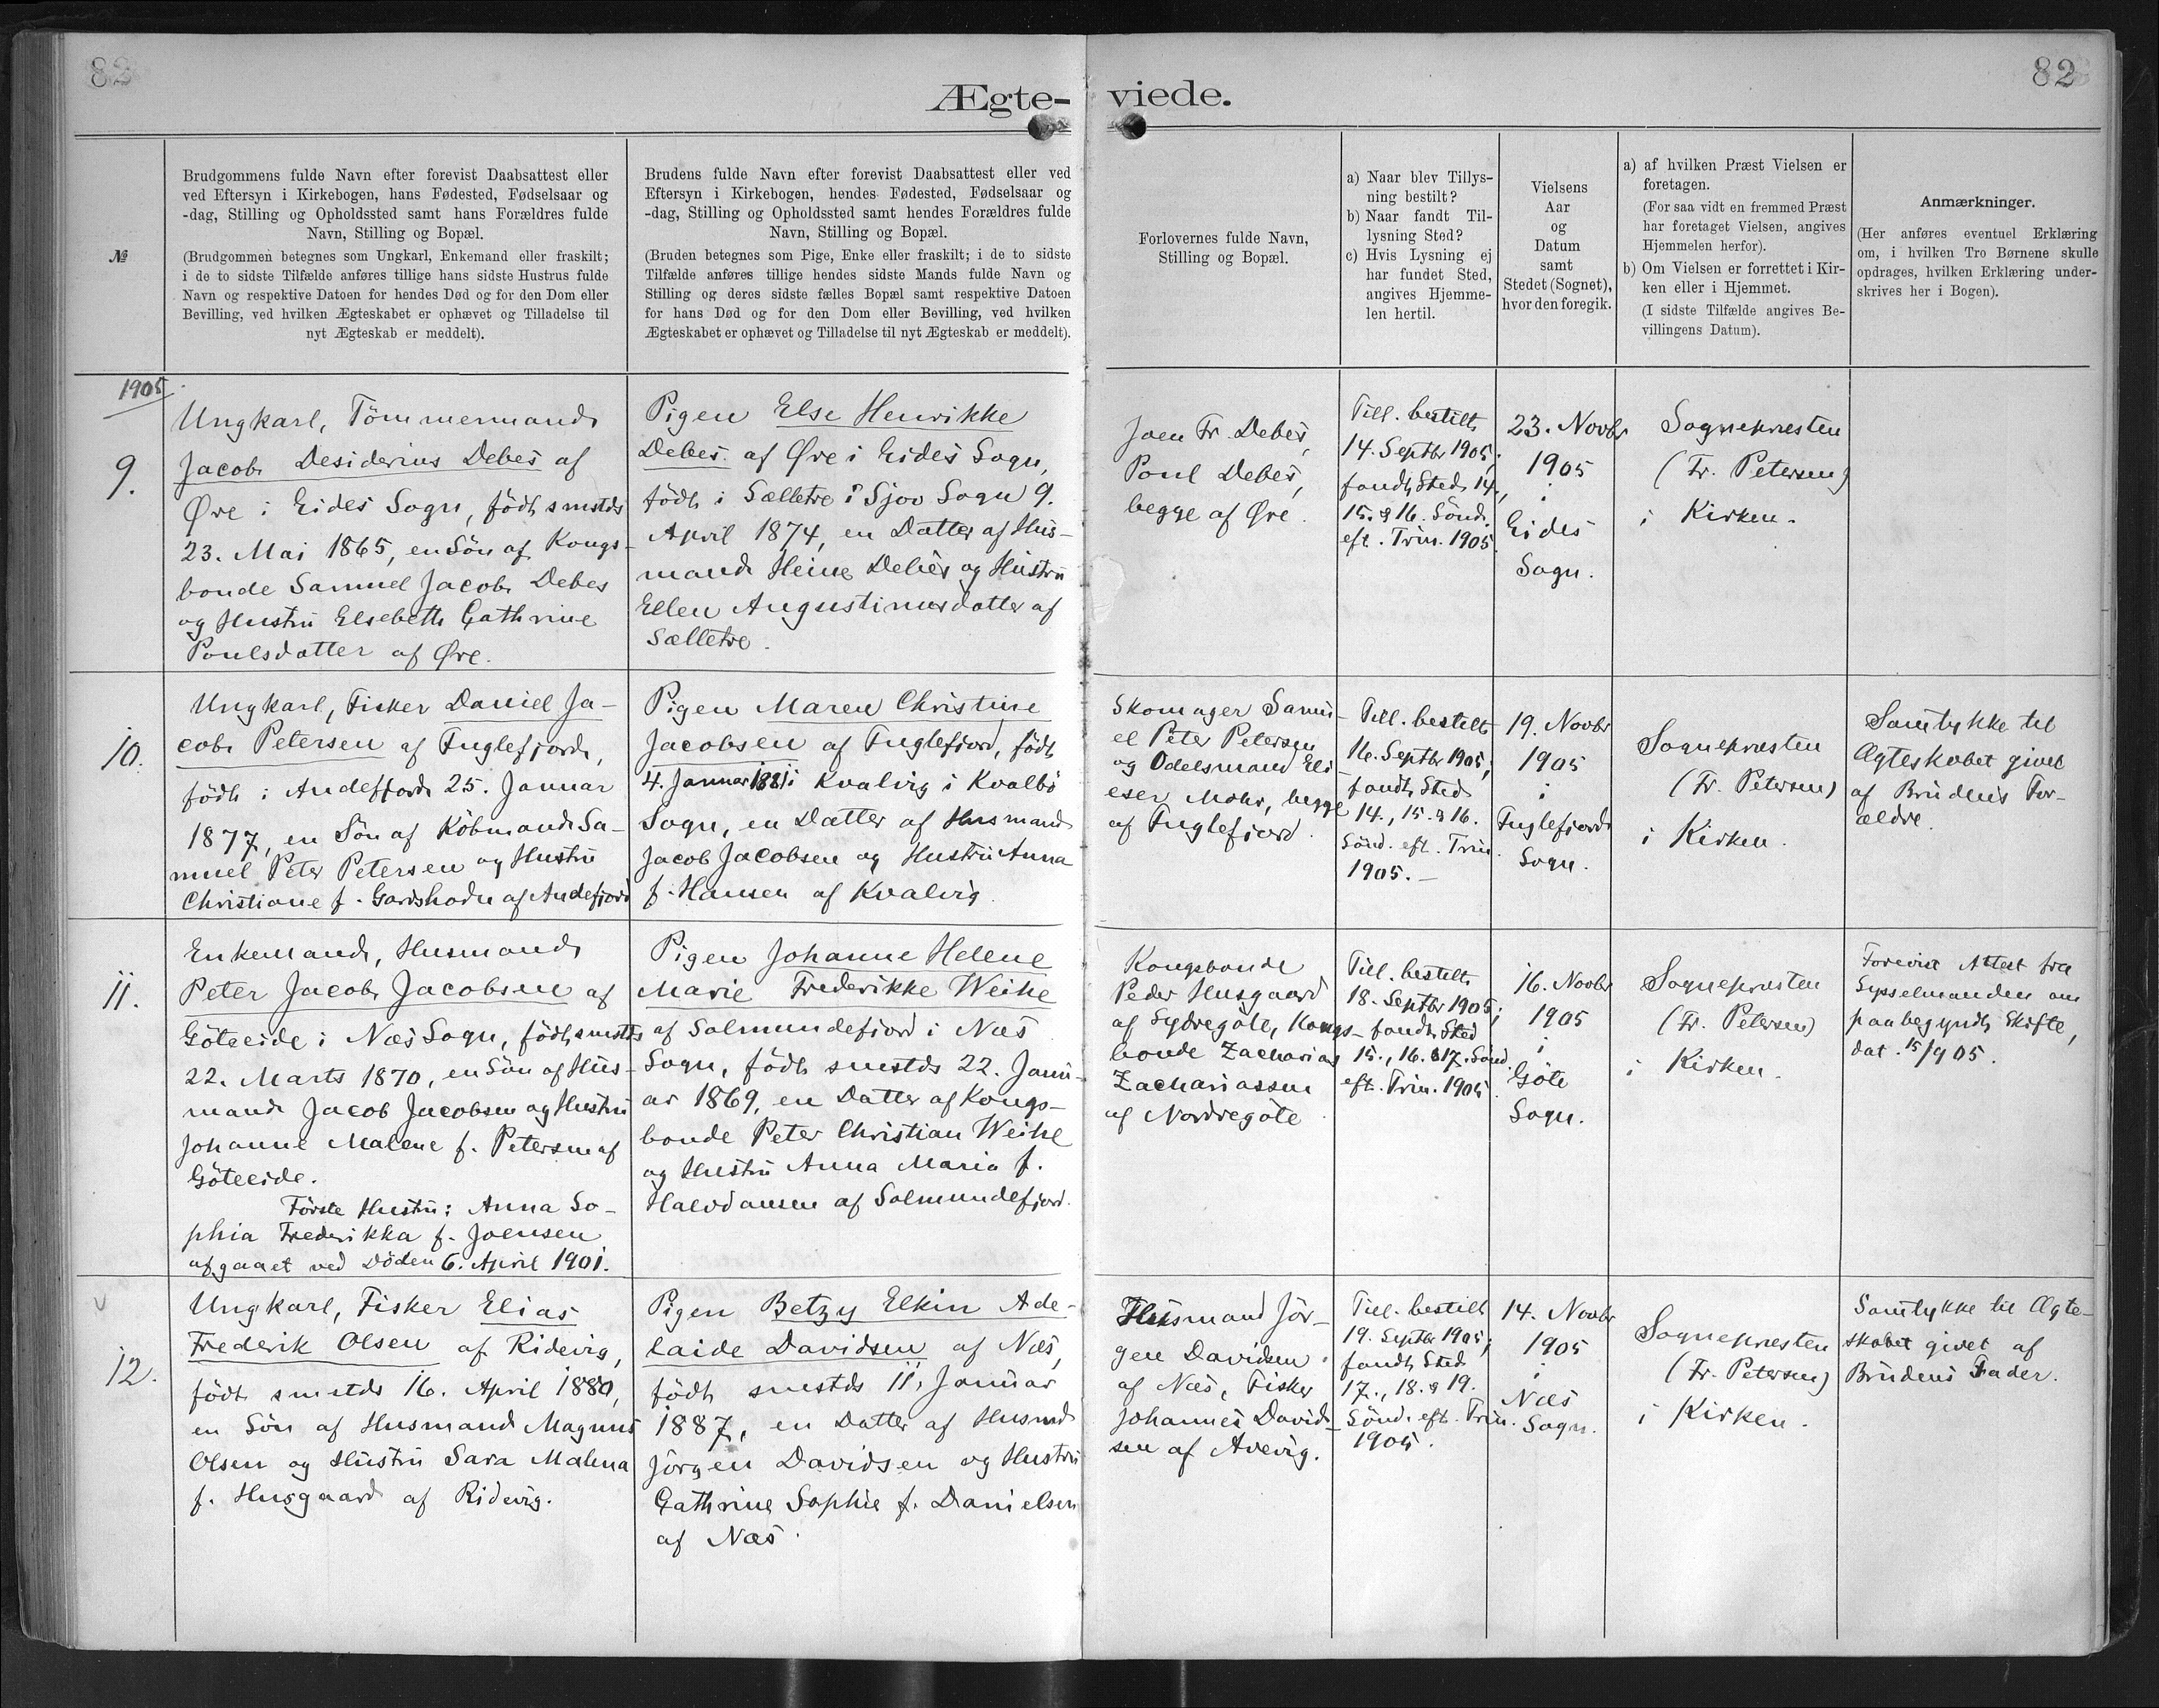 82
82
Ægte-
viede.
№
Brudgommens fulde Navn efter forevist Daabsattest eller
ved Eftersyn i Kirkebogen, hans Fødested, Fødselsaar og
-dag, Stilling og Opholdssted samt hans Forældres fulde
Navn, Stilling og Bopæl.
(Brudgommen betegnes som Ungkarl, Enkemand eller fraskilt;
i de to sidste Tilfælde anføres tillige hans sidste Hustrus fulde
Navn og respektive Datoen for hendes Død og for den Dom eller
Bevilling, ved hvilken Ægteskabet er ophævet og Tilladelse til
nyt Ægteskab er meddelt).
Brudens fulde Navn efter forevist Daabsattest eller ved
Eftersyn i Kirkebogen, hendes Fødested, Fødselsaar og
-dag, Stilling og Opholdssted samt hendes Forældres fulde
Navn, Stilling og Bopæl.
(Bruden betegnes som Pige, Enke eller fraskilt; i de to sidste
Tilfælde anføres tillige hendes sidste Mands fulde Navn og
Stilling og deres sidste fælles Bopæl samt respektive Datoen
for hans Død og for den Dom eller Bevilling, ved hvilken
Ægteskabet er ophævet og Tilladelse til nyt Ægteskab er meddelt).
Forlovernes fulde Navn,
Stilling og Bopæl.
a) Naar blev Tillys-
ning bestilt?
b) Naar fandt Til-
lysning Sted?
c) Hvis Lysning ej
har fundet Sted,
angives Hjemme-
len hertil.
Vielsens
Aar
og
Datum
samt
Stedet (Sognet),
hvor den foregik.
a) af hvilken Præst Vielsen er
foretagen.
(For saa vidt en fremmed Præst
har foretaget Vielsen, angives
Hjemmelen herfor).
b) Om Vielsen er forrettet i Kir-
ken eller i Hjemmet.
(I sidste Tilfælde angives Be-
villingens Datum).
Anmærkninger.
(Her anføres eventuel Erklæring
om, i hvilken Tro Børnene skulle
opdrages, hvilken Erklæring under-
skrives her i Bogen).
1905
9.
Ungkarl, Tömmermand
Jacob Desiderius Debes af
Øre i Eides Sogn, född smstds
23. Mai 1865, en Sön af Kongs-
bonde Samuel Jacob Debes
og Hustru Elsebeth Cathrine
Poulsdatter af Øre.
Pigen Else Henrikke
Debes af Øre i Eides Sogn,
födt i Sælletre i Sjov Sogn 9.
April 1874, en Datter af Hus-
mand Heine Debes og Hustru
Ellen Augustinusdatter af
Sælletre.
Joen Fr. Debes,
Poul Debes,
begge af Øre.
Till. bestilt
14. Septbr 1905;
fandt Sted 14.,
15. & 16. Sönd.
eft. Trin. 1905
23. Novbr
1905
i
Eides
Sogn.
Sognepræsten
(Fr. Petersen)
i Kirken.
10.
Ungkarl, Fisker Daniel Ja-
cob Petersen af Fuglefjord,
födt i Andefjord 25. Januar
1877, en Sön af Köbmand Sa-
muel Peter Petersen og Hustru
Christiane f. Gardshodn af Andefjord
Pigen Maren Christine
Jacobsen af Fuglefjord, födt
4. Januar 1881 i Kvalvig i Kvalbö
Sogn, en Datter af Husmand
Jacob Jacobsen og Hustru Anna
f. Hansen af Kvalvig.
Skomager Samu-
el Peter Petersen
og Odelsmand Eli-
eser Mohr, begge
af Fuglefjord.
Till. bestilt
16. Septbr 1905;
fandt Sted
14., 15. & 16.
Sönd. eft. Trin.
1905.—
19. Novbr
1905
i
Fuglefjord
Sogn.
Sognepræsten
(Fr. Petersen)
i Kirken.
Samtykke til
Ægteskabet givet
af Brudens For-
ældre.
11.
Enkemand, Husmand
Peter Jacob Jacobsen af
Göteeide i Næs Sogn, födt smstds
22. Marts 1870, en Sön af Hus-
mand Jacob Jacobsen og Hustru
Johanne Malene f. Petersen af
Göteeide.
Förste Hustru: Anna So-
phia Frederikka f. Joensen
afgaaet ved Döden 6. April 1901.
Pigen Johanne Helene
Marie Frederikke Weihe
af Salmundefjord i Næs
Sogn, födt smstds 22. Janu-
ar 1869, en Datter af Kongs-
bonde Peter Christian Weihe
og Hustru Anna Maria f.
Halvdansen af Salmundefjord.
Kongsbonde
Peder Husgaard
af Sydregöte, Kongs-
bonde Zacharias
Zachariassen
af Nordregöte
Till. bestilt
18. Septbr 1905;
fandt Sted
15., 16. & 17. Sönd.
eft. Trin. 1905
16. Novbr
1905
i
Göte
Sogn.
Sognepræsten
(Fr. Petersen)
i Kirken.
Forevist Attest fra
Sysselmanden om
paabegyndt Skifte,
dat. 15/9 05.
12.
Ungkarl, Fisker Elias
Frederik Olsen af Ridevig,
födt smstds 16. April 1880,
en Sön af Husmand Magnus
Olsen og Hustru Sara Malena
f. Husgaard af Ridevig.
Pigen Betzy Elkin Ade-
laide Davidsen af Næs,
födt smstds 11. Januar
1887, en Datter af Husmd
Jörgen Davidsen og Hustru
Cathrine Sophie f. Danielsen
af Næs.
Husmand Jör-
gen Davidsen
af Næs, Fisker
Johannes David-
sen af Avevig.
Till. bestilt
19. Septbr 1905;
fandt Sted
17., 18. & 19.
Sönd. eft. Trin.
1905.
14. Novbr
1905
i
Næs
Sogn.
Sognepræsten
(Fr. Petersen)
i Kirken.
Samtykke til Ægte-
skabet givet af
Brudens Fader.